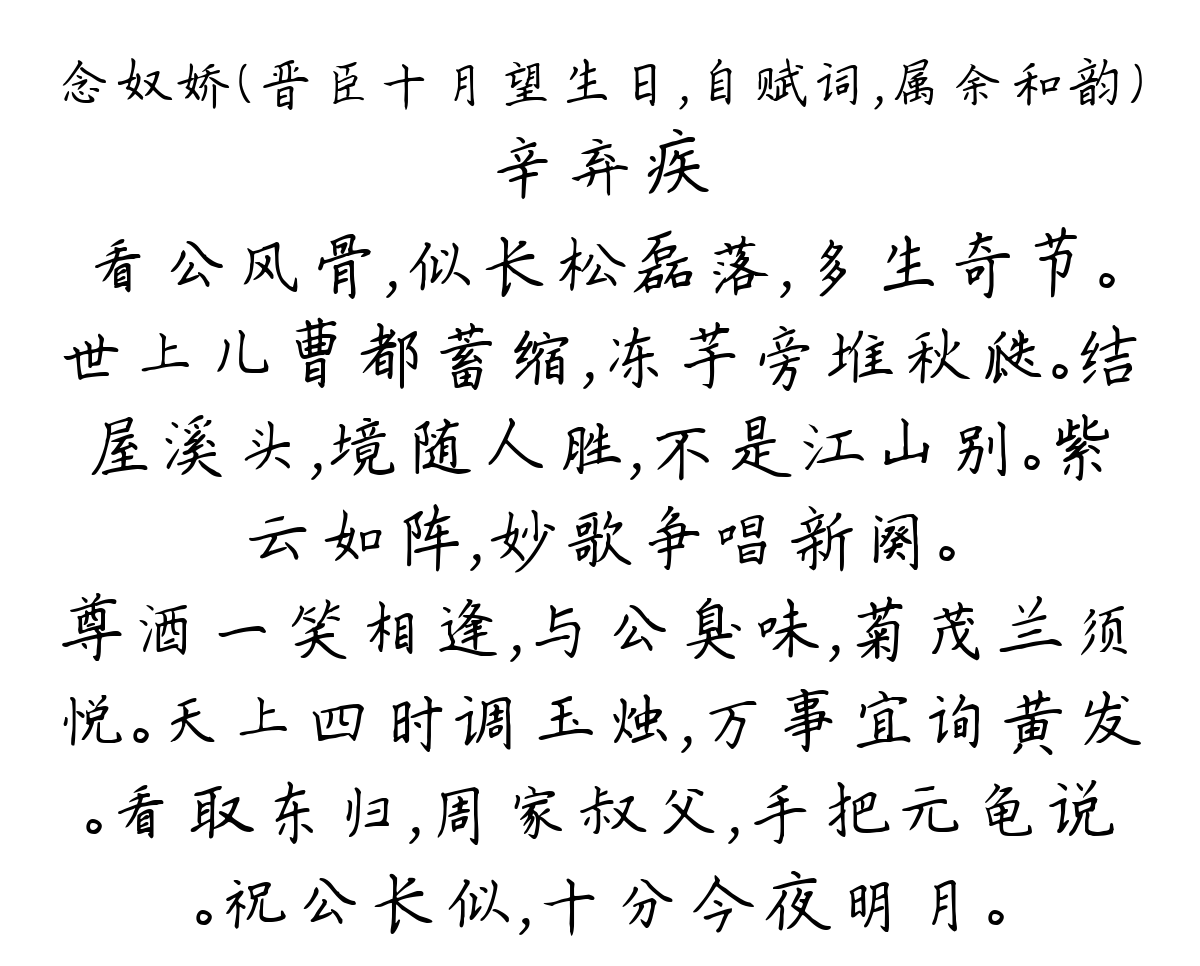 念奴娇(晋臣十月望生日,自赋词,属余和韵)
辛弃疾
看公风骨,似长松磊落,多生奇节。
世上儿曹都蓄缩,冻芋旁堆秋瓞。结
屋溪头,境随人胜,不是江山别。紫
云如阵,妙歌争唱新阕。
尊酒一笑相逢,与公臭味,菊茂兰须
悦。天上四时调玉烛,万事宜询黄发
。看取东归,周家叔父,手把元龟说
。祝公长似,十分今夜明月。